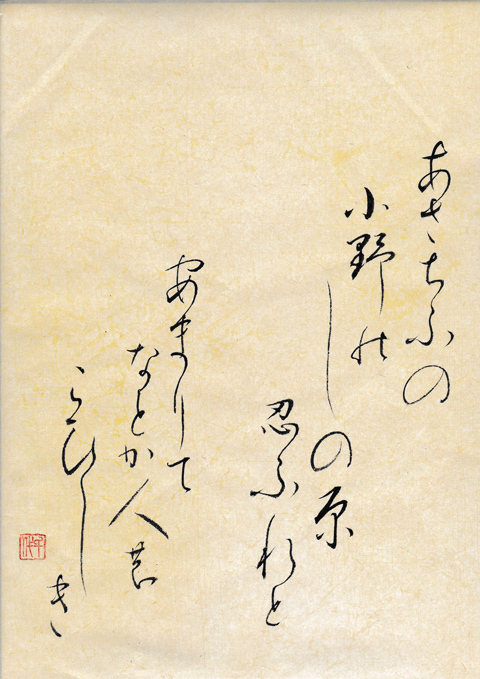 あさちふの
小野の
しの原
忍ふれと
あまりて
なとか人の
こひしき